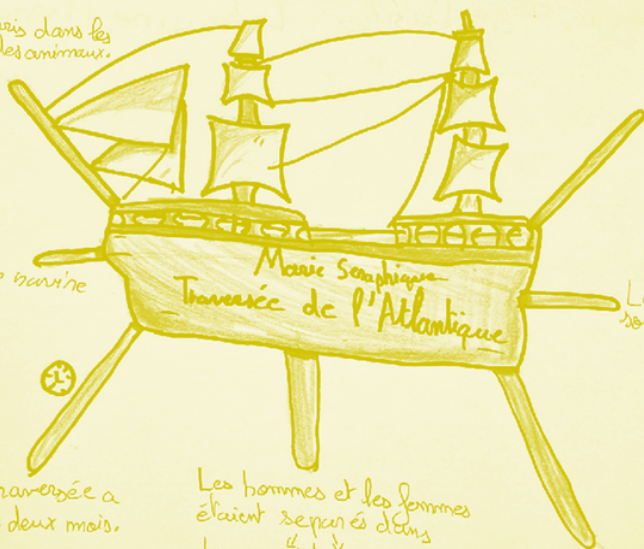 ris dans les
les animaux.
Marie Seraphique
Traversée de l'Atlantique
navire
L
so
raversée a
deux mois.
Les hommes et les femmes
étaient separés dans